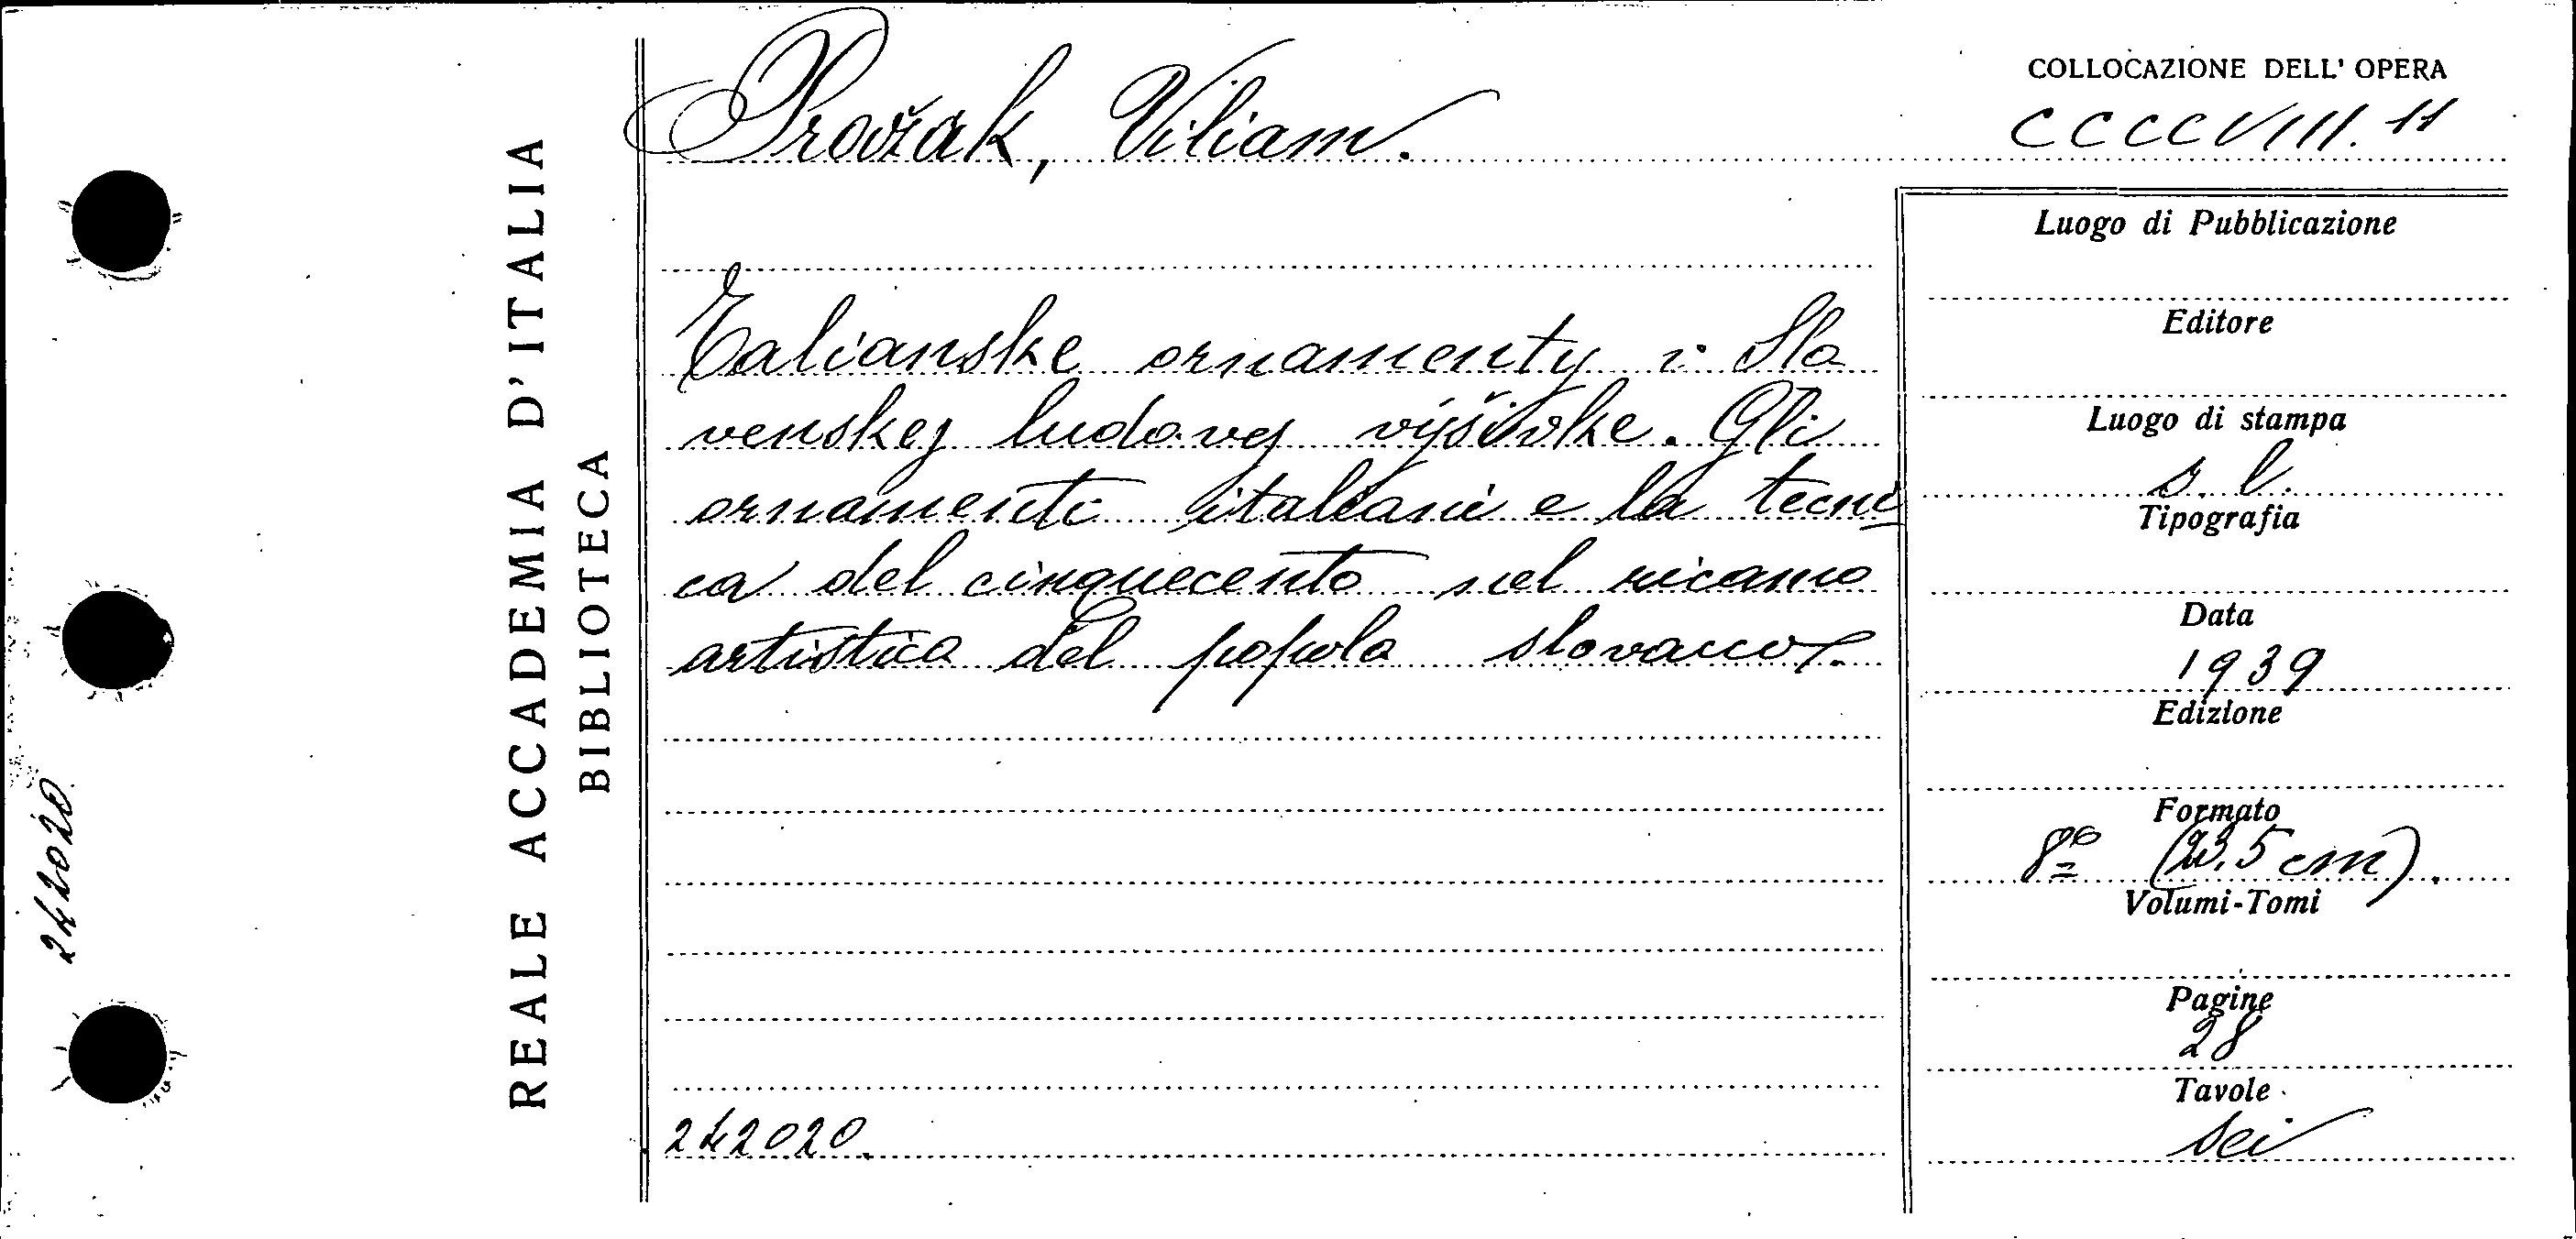 Pražák, Viliam.
COLLOCAZIONE DELL' OPERA
CCCCVIII. 11
REALE ACCADEMIA D'ITALIA
BIBLIOTECA
Talianske ornamenty v Slo
venskej ludovej výšivke. Gli
ornamenti italiani e la tecni
ca del cinquecento nel ricamo
artistico del popolo slovacco.
242020.
Luogo di Pubblicazione
Editore
Luogo di stampa
s. l.
Tipografia
Data
1939
Edizione
Formato
8º (23,5 cm).
Volumi-Tomi
Pagine
28
Tavole
sei
242020